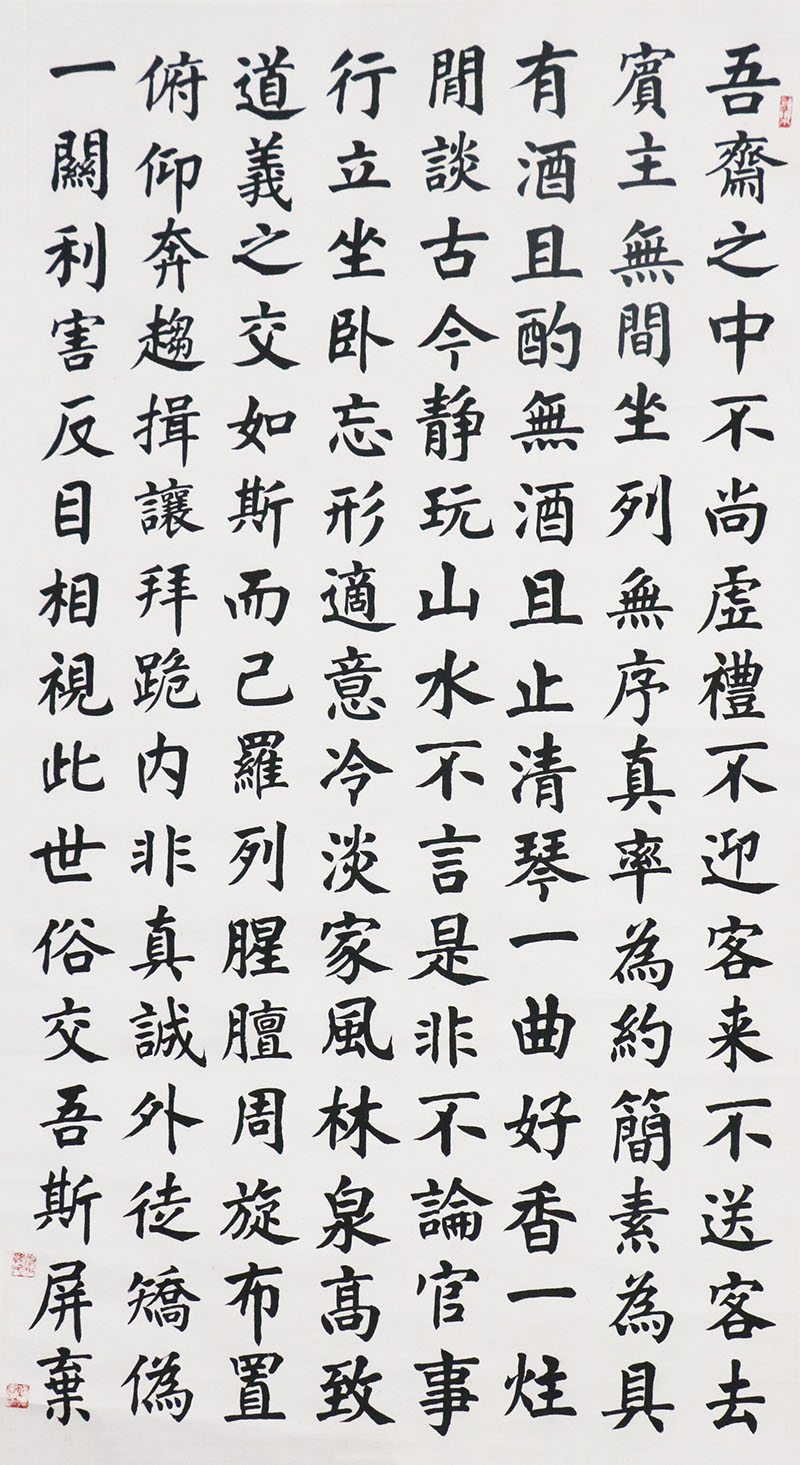 吾齋之中不尚虛禮不迎客来不送客去
賓主無間坐列無序真率為約簡素為具
有酒且酌無酒且止清琴一曲好香一炷
閒談古今静玩山水不言是非不論官事
行立坐卧忘形適意冷淡家風林泉高致
道義之交如斯而已羅列腥膻周旋布置
俯仰奔趨揖讓拜跪内非真誠外徒矯偽
一關利害反目相視此世俗交吾斯屏棄